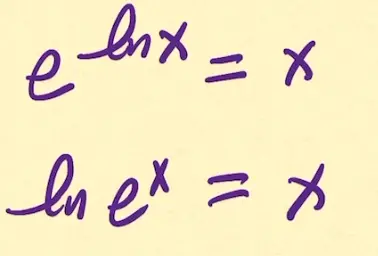 e^ln x = x
ln e^x = x